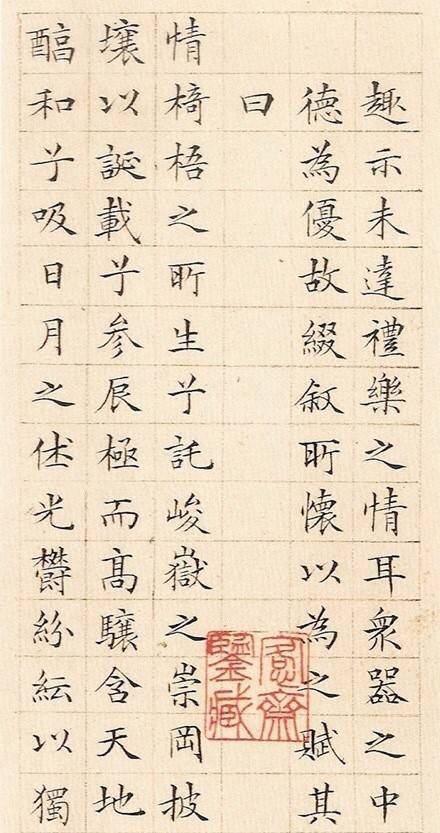 趣示未達禮樂之情耳衆器之中
德為優故綴叙所懷以為之賦其
曰
情椅梧之所生兮託峻嶽之崇岡披
壤以誕載兮参辰極而高驤含天地
醕和兮吸日月之休光鬱紛紜以獨
齋鑒藏